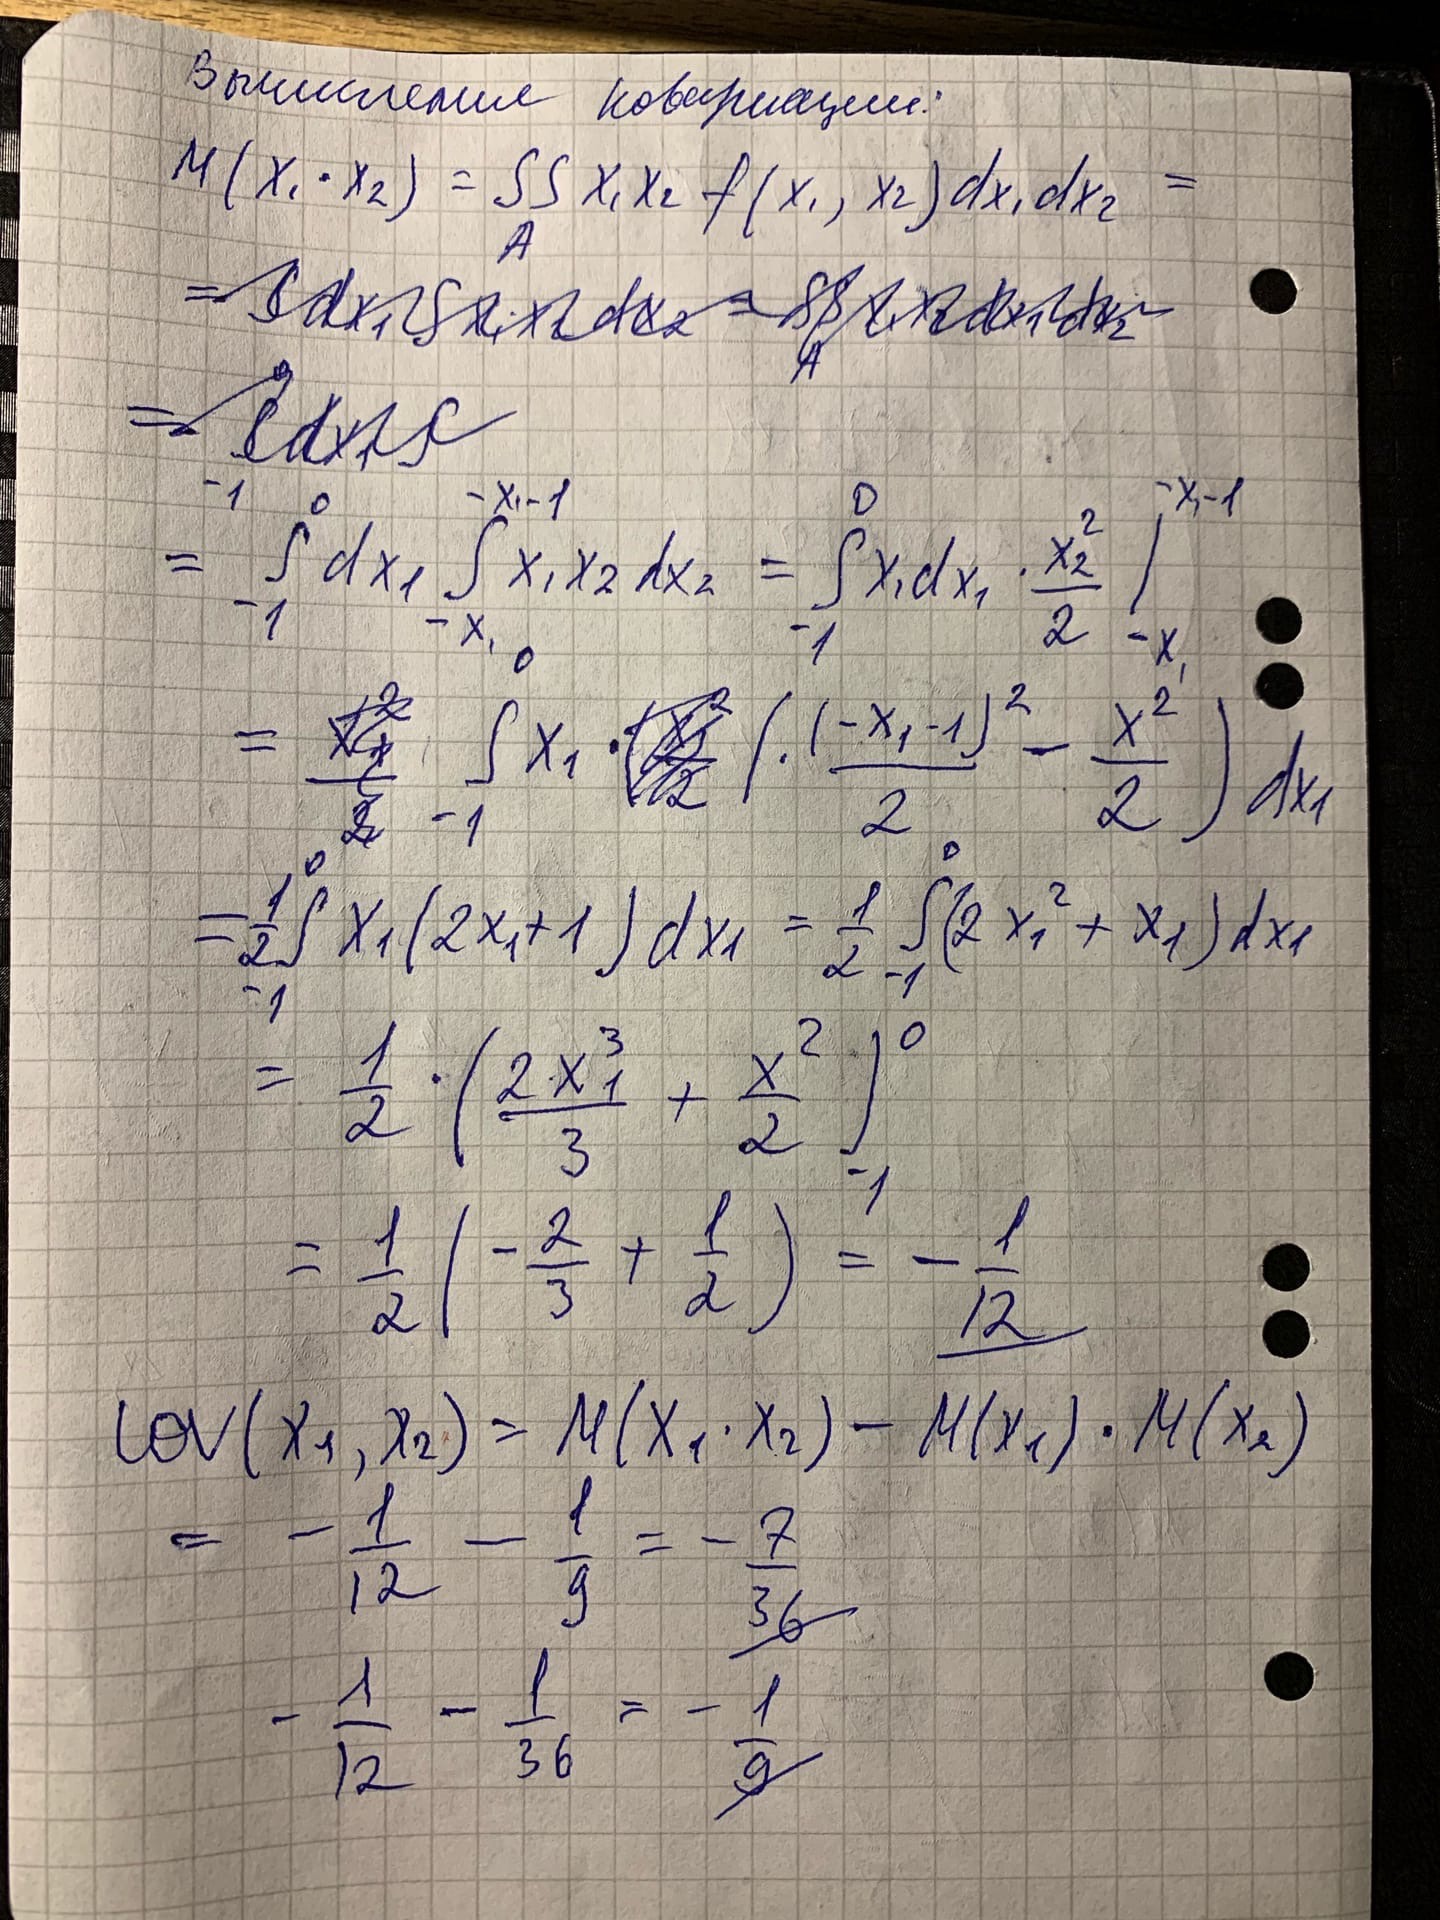 Вычисления ковариации:
M(x₁·x₂) = ∫∫_A x₁x₂ f(x₁, x₂)dx₁dx₂ =
= ∫_{-1}^{0} dx₁ ∫_{-x₁}^{-x₁-1} x₁x₂dx₂ = ∫_{-1}^{0} x₁dx₁ · x₂²/2 |_{-x₁}^{-x₁-1}
= ∫_{-1}^{0} x₁ · (·(-x₁-1)²/2 - x²/2) dx₁
= 1/2 ∫_{-1}^{0} x₁(2x₁+1)dx₁ = 1/2 ∫_{-1}^{0} (2x₁² + x₁)dx₁
= 1/2 · (2x₁³/3 + x²/2)|_{-1}^{0}
= 1/2 (-2/3 + 1/2) = -1/12
cov(x₁, x₂) = M(x₁·x₂) - M(x₁)·M(x₂)
= -1/12 - 1/9 = -7/36
-1/12 - 1/36 = -1/9